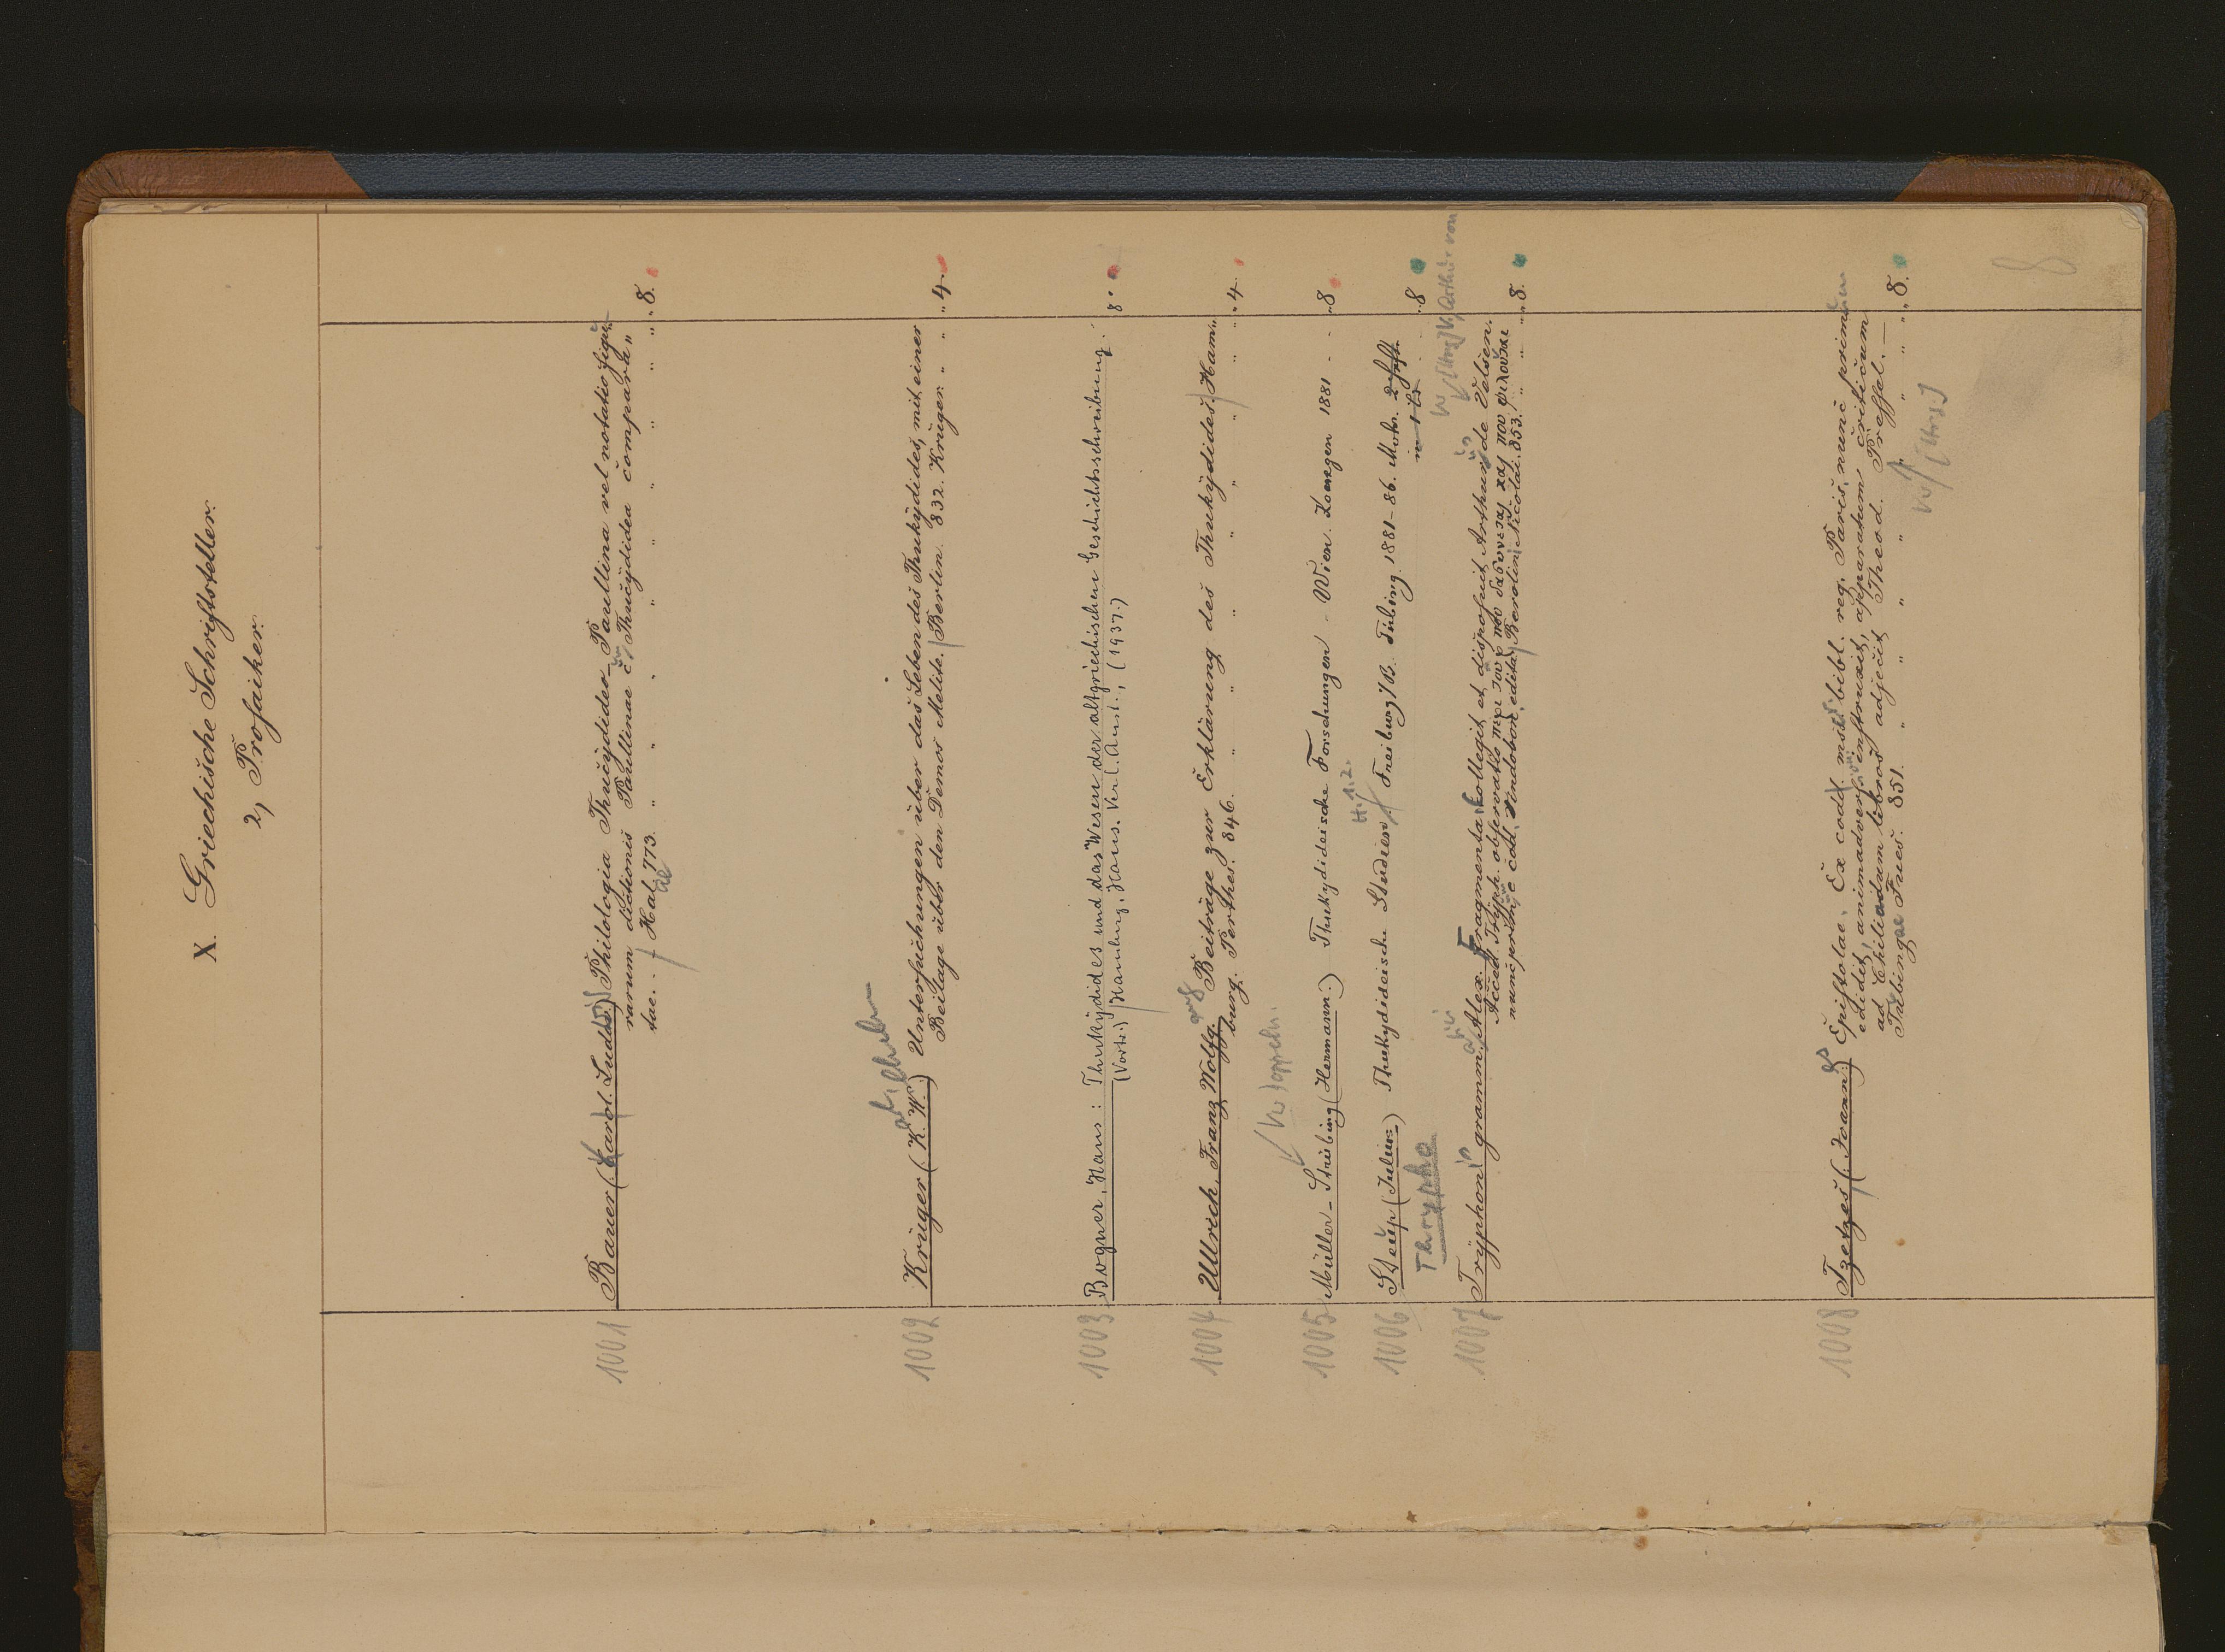 X. Griechische Schriftsteller.
2, Prosaiker.
1001
Bauer (Karol. Ludov.) Philologia Thucydideo-Paullina vel notatio figu-
rarum dictionis Paullinae c. Thucydidea compara„
tae. Halae 773. „ „ „ „ „ „ „ „ 8.
1002
Krüger (K. W.) Untersuchungen über das Leben des Thukydides, mit einer
Beilage über den Demos Melite. Berlin. 832. Krüger. „ „ „ 4.
1003
Bogner, Hans: Thukydides und das Wesen der altgriechischen Geschichtsschreibung.
(Vortr.) Hamburg, Hans. Verl. Anst., (1937.) 8°
1004
Ullrich, Franz Wolfg. Beiträge zur Erklärung des Thukydides. Ham„
burg. Perthes. 846. „ „ „ „ „ „ „ 4.
Vw Doppeln.
1005
Müller-Strübing (Hermann.) Thukydideische Forschungen - Wien. Konegen 1881 - - „8
H. 1.2.
1006
Steup (Julius) Thukydideische Studien Freiburg i/B. Tübing. 1881-86. Mohr. 2 Hefte - - 8
in 1 B
Thrypho
1007
Tryphonis gramm. Alex. Fragmenta collegit et disposuit Arthurus de Velsen.
Acced. Tryph. observatio
nunc primum e cod. Vindobon. edita. Berolini Nicolai. 853. „ „ „ 8.
1008
Tzetzes (Joann.) Epistolae. Ex codd. mss. bibl. reg. Paris. nunc primum
edidit, animadvers. instruxit, apparatum criticum
ad Chiliadum libros adjecit Theod. Pressel. —
Tubingae Fues. 851. „ „ „ „ „ „ „ 8.
8